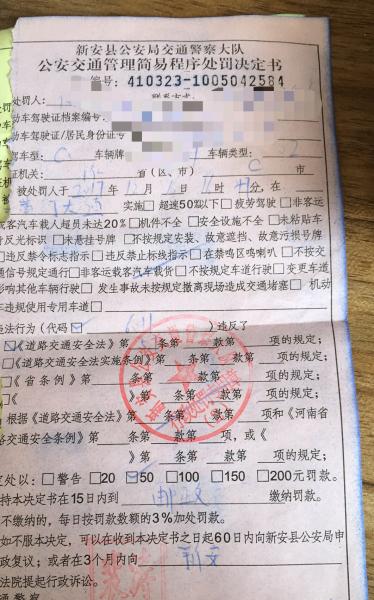 新安县公安局交通警察大队
公安交通管理简易程序处罚决定书
编号: 410323-1005042584
处罚人:
动车驾驶证档案编号
动车驾驶证/居民身份证
驾车型: C 车辆牌 车辆类型:
证机关: 省(区、市) C 市
被处罚人于 2017 年 12 月 日 时 分, 在
实施□超速50%以下□疲劳驾驶 □非客运
载客汽车载人超员未达20%□机件不全 □安全设施不全 □未粘贴车
身反光标识 □未悬挂号牌 □不按规定安装、故意遮挡、故意污损号牌
□违反禁令标志指示 □违反禁止标线指示 □在禁鸣区鸣喇叭 □不按交
通信号规定通行□非客运载客汽车载货□不按规定车道行驶□变更车道
影响其他车辆行驶□ 发生事故未按规定撤离现场造成交通堵塞□ 机动
车违规使用专用车道□
违法行为(代码 )违反了
□《道路交通安全法》第 条第 款第 项的规定;
□《道路交通安全法实施条例》第 条第 款第 项的规定;
□《省条例》第 条第 款第 项的规定;
□《 》第 条第 款第 项的规定;
根据《道路交通安全法》第 条第 款第 项和《河南省
道路交通安全条例》第 条第 款第 项, 或《
》第 条第 款第 项的规定,
定处以: □警告 □20 □50 □100 □150 □200元罚款。
持本决定书在15日内到 邮政 缴纳罚款。
不缴纳的, 每日按罚款数额的3%加处罚款。
如不服本决定, 可以在收到本决定书之日起60日内向新安县公安局申
政复议; 或者在3个月内向 新安
法院提起行政诉讼。